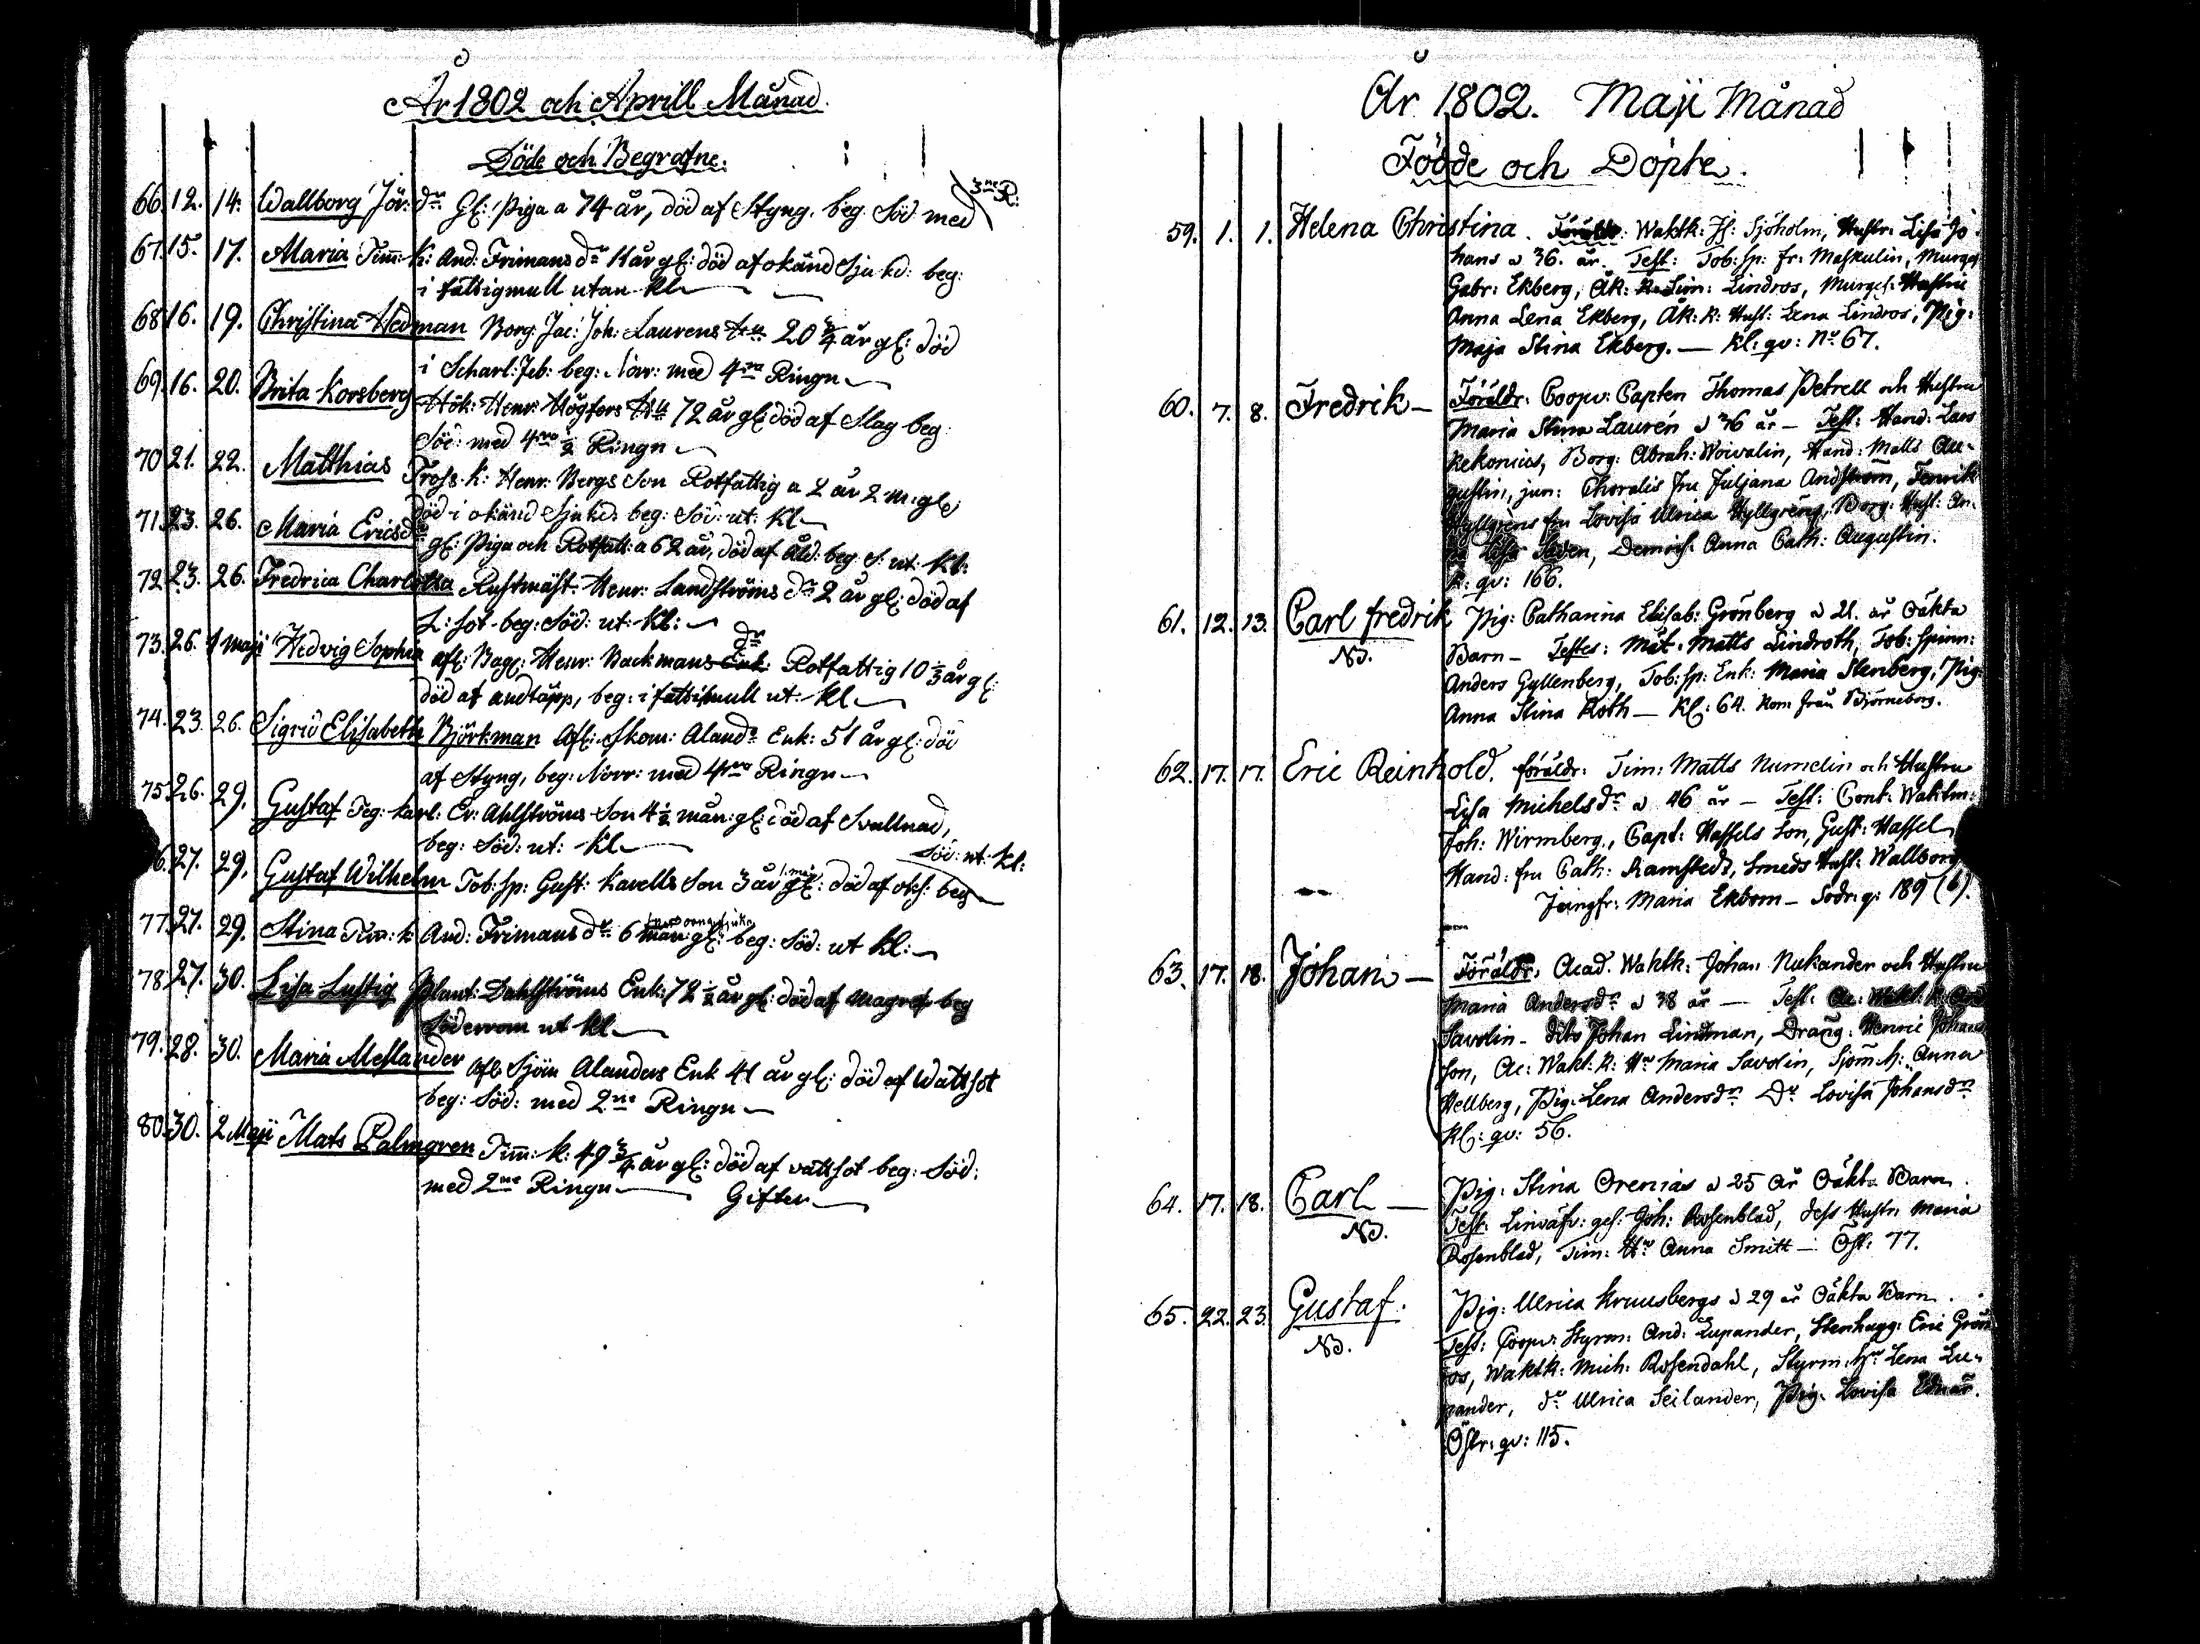 År 1802 och Aprill Månad.
Döde och Begrafne.
66. 12. 14. Wallborg Jör: dr. Gl: Piga a 74 år, död af Styng. beg. Söd. med 3ne R:
67. 15. 17. Maria Tim: k: And: Frimans dr 11 år gl: död af okänd Sjukd: beg:
i fattigmull utan kl
68. 16. 19. Christina Hedman Borg: Jac: Joh: Laurens Hu 20 3/4 år gl: död
i Scharl: Feb: beg: Norr: med 4ra Ringn
69. 16. 20. Brita Korsberg Hök: Henr: Högfors Hu 72 år gl: död af Slag beg:
Söd: med 4ra 1/2 Ringn
70. 21. 22. Matthias Tross. k: Henr: Bergs Son Rotfattig a 2 år 2 m: gl:
död i okänd Sjukd: beg: Söd: ut: kl
71. 23. 26. Maria Ericsdr gl: Piga och Rotfatt: a 62 år, död af Åld: beg: S: ut: kl:
72. 23. 26. Fredrica Charlotta Rustmäst: Henr: Landströms dr 2 år gl: död af
L: sot beg: Söd: ut: kl:
73. 26. 1 Maji Hedvig Sophia afl: Bag: Henr: Backmans Enk: dr Rotfattig 10 1/3 år gl:
död af andtäpp, beg: i fattimull ut: kl
74. 23. 26. Sigrid Elisabeth Björkman Afl: Skom: Alands Enk: 51 år gl: död
af Styng, beg: Norr: med 4ra Ringn
75. 26. 29. Gustaf Teg: karl: Er: Ahlströms Son 4 1/2 mån: gl: död af Svullnad,
beg: Söd: ut: kl
6. 27. 29. Gustaf Wilhelm Tob: Sp: Gust: Kavells Son 3 år 1 m: gl: död af oks: beg Söd: ut: kl:
77. 27. 29. Stina Tim: k: And: Frimans dr 6 mån: gl: beg: Söd: ut kl:
78. 27. 30. Lisa Lustig Plant: Dahlströms Enk: 72 1/2 år gl: död af Magref beg
Söderrom ut kl
79. 28. 30. Maria Meslander afl: Sjöm Alanders Enk 41 år gl: död af Wattsot
beg: Söd: med 2ne Ringn
80. 30. 2 Maji Mats Palmgren Tim: k: 49 3/4 år gl: död af vattsot beg: Söd:
med 2ne Ringn Gifter
År 1802. Maji Månad
Födde och Döpte.
59. 1. 1. Helena Christina. Föräldr: Waktk: Jj: Sjöholm, Hustr: Lisa Jo
hans a 36. år. Test: Tob: Sp: Fr: Maskulin, Murges
Gabr: Ekberg, Åk: k: Sim: Lindros, Murges: Hustru
Anna Lena Ekberg, Åk: k: Hust: Lena Lindros, Pig:
Maja Stina Ekberg. — kl: qv: No 67.
60. 7. 8. Fredrik — Föräldr: Coopv: Capten Thomas Petrell och Hustru
Maria Stina Laurén a 36 år — Test: Hand: Lars
Rekonius, Borg: Abrah: Woivalin, Hand: Matts Au-
gustin, jun: Choralis fru Juljana Andström, Fenrik
Hyllgrens fru Lovisa Ulrica Hyllgreng, Borg: Hust: An-
na Lisa Saden, Demois: Anna Cath: Augustin.
K: qv: 166.
61. 12. 13. Carl fredrik Pig: Catharina Elisab: Grönberg a 21. år Oäkta
NB. Barn — Testes: Mät: Matts Lindroth, Tob: Spinn:
Anders Gyllenberg, Tob: Sp: Enk: Maria Stenberg, Pig:
Anna Stina Roth — Kl: 64. Kom från Björneborg.
62. 17. 17. Eric Reinhold. föräldr: Tim: Matts Numelin och Hustru
Lisa Michelsdr a 46 år — Test: Cont: Waktm:
Joh: Wirmberg, Capt: Hassels Son, Gust: Hassel
Hand: fru Cath: Ramstedt, Smeds Hust: Wallborg
Jungfr: Maria Ekbom — Södr: q: 189 (6).
63. 17. 18. Johan — Föräldr: Acad. Waktk: Johan Nukander och Hustru
Maria Andersdr a 38 år — Test: Ac: Wakt: k:
Savolin — dito Johan Lindman, Dräng: Henric Johans
Son, Ac: Wakt: k: Hu Maria Savolin, Sjöm: h: Anna
Hellberg, Pig: Lena Andersdr Dr Lovisa Johansdr
Kl: qv: 56.
64. 17. 18. Carl — Pig: Stina Orenias a 25 år Oäkta Barn.
NB. Test: Linväfv: ges: Joh: Rosenblad, dess Hustr: Maria
Rosenblad, Tim: Hu Anna Smitt — Öst: 77.
65. 22. 23. Gustaf. Pig: Ulrica Kruusbergs a 29 år Oäkta Barn.
NB. Test: Coopv: Styrm: And: Lupander, Stenhugg: Eric Grön
ros, Waktk: Mich: Rosendahl, Styrm: hu Lena Lu-
pander, dr Ulrica Seilander, Pig: Lovisa
Östr: qv: 115.